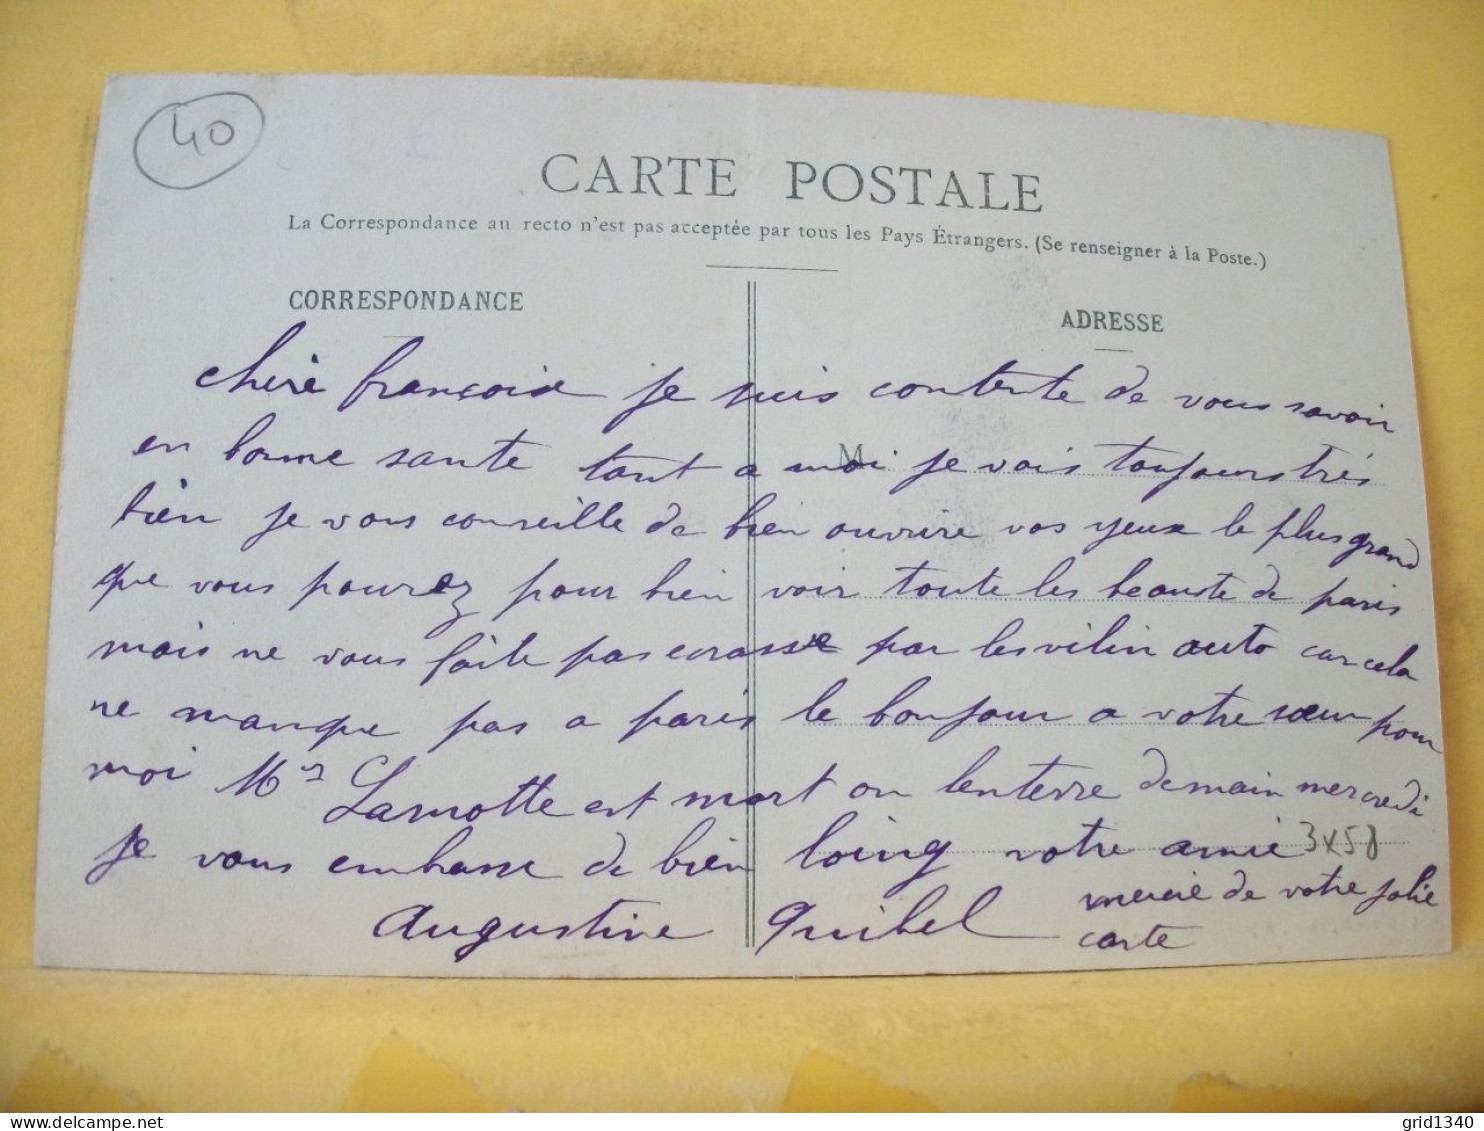 40
CARTE POSTALE
La Correspondance au recto n'est pas acceptée par tous les Pays Étrangers. (Se renseigner à la Poste.)
CORRESPONDANCE
ADRESSE
chère françoise je suis contente de vous savoir
en bonne sante tant a moi je vais toujours très
M
bien je vous conseille de bien ouvrire vos yeux le plus grand
que vous pourez pour bien voir toute les beauste de paris
mais ne vous faite pas ecrasse par les vilin auto car cela
ne manque pas a paris le bonjour a votre sœur pour
moi Mr Lamotte est mort on lenterre demain mercredi
je vous embrasse de bien loing votre amie 3x58
Augustine Quibel
mercie de votre jolie
carte
grid1340